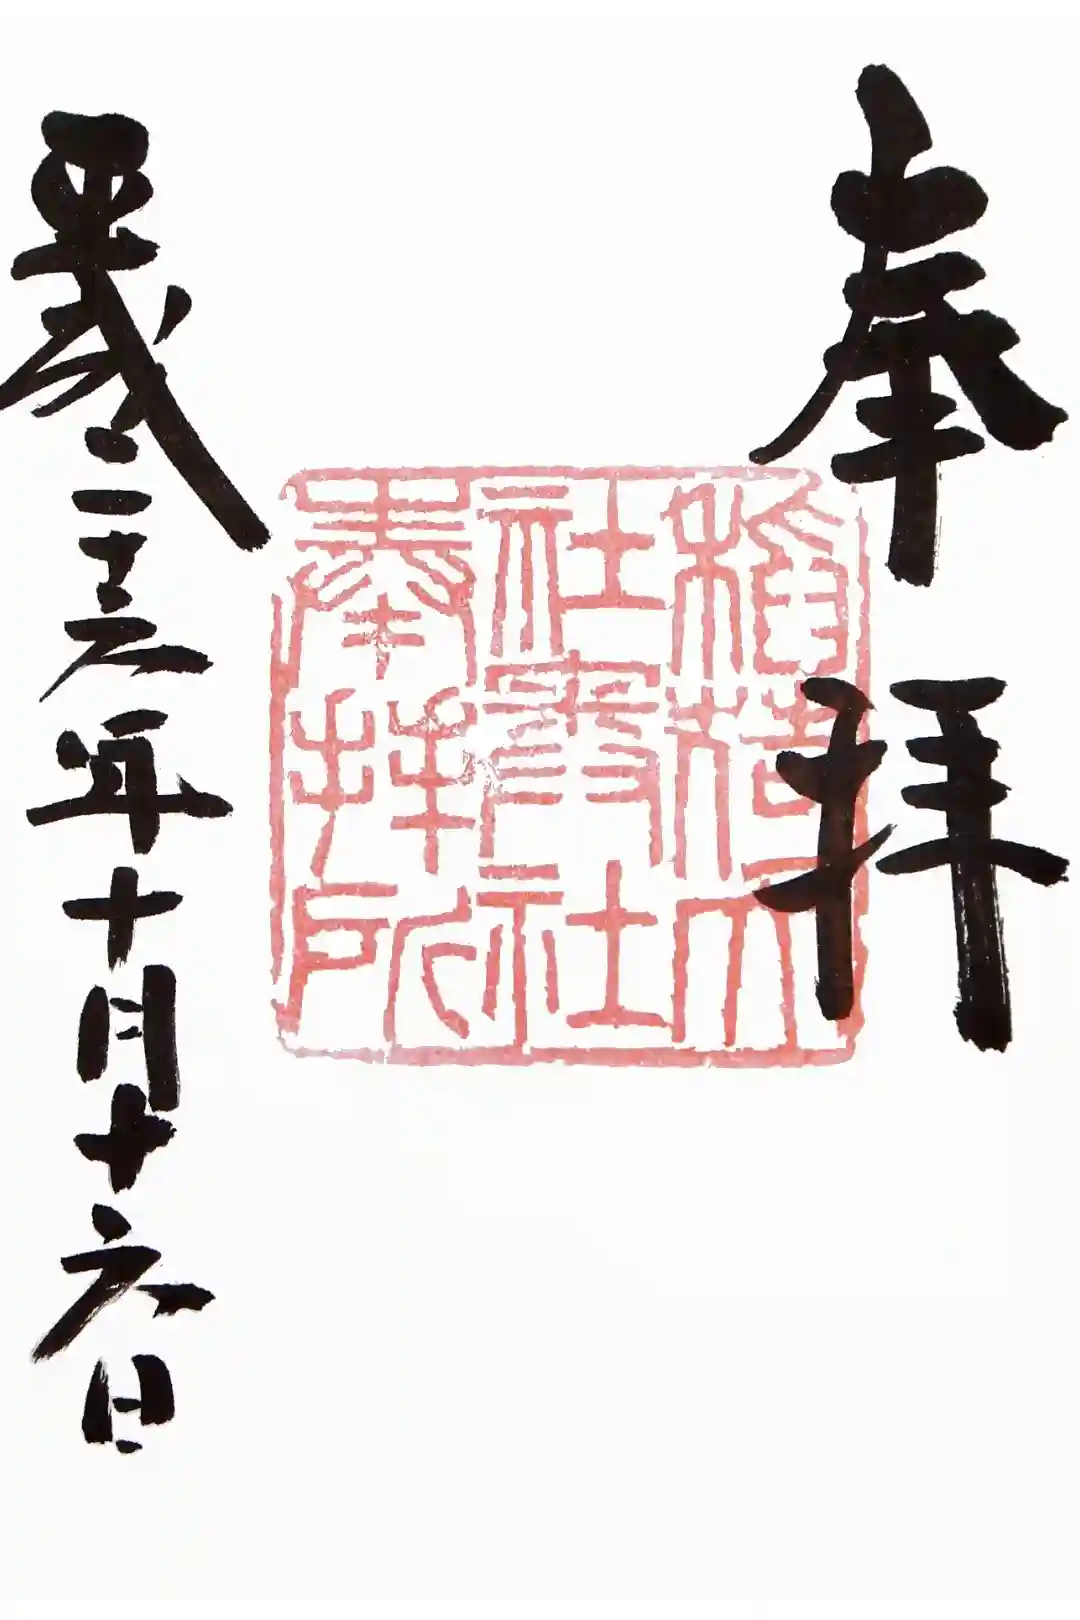 奉拝
稲荷大
社奥社
奉拝所
平成二十六年十月十六日